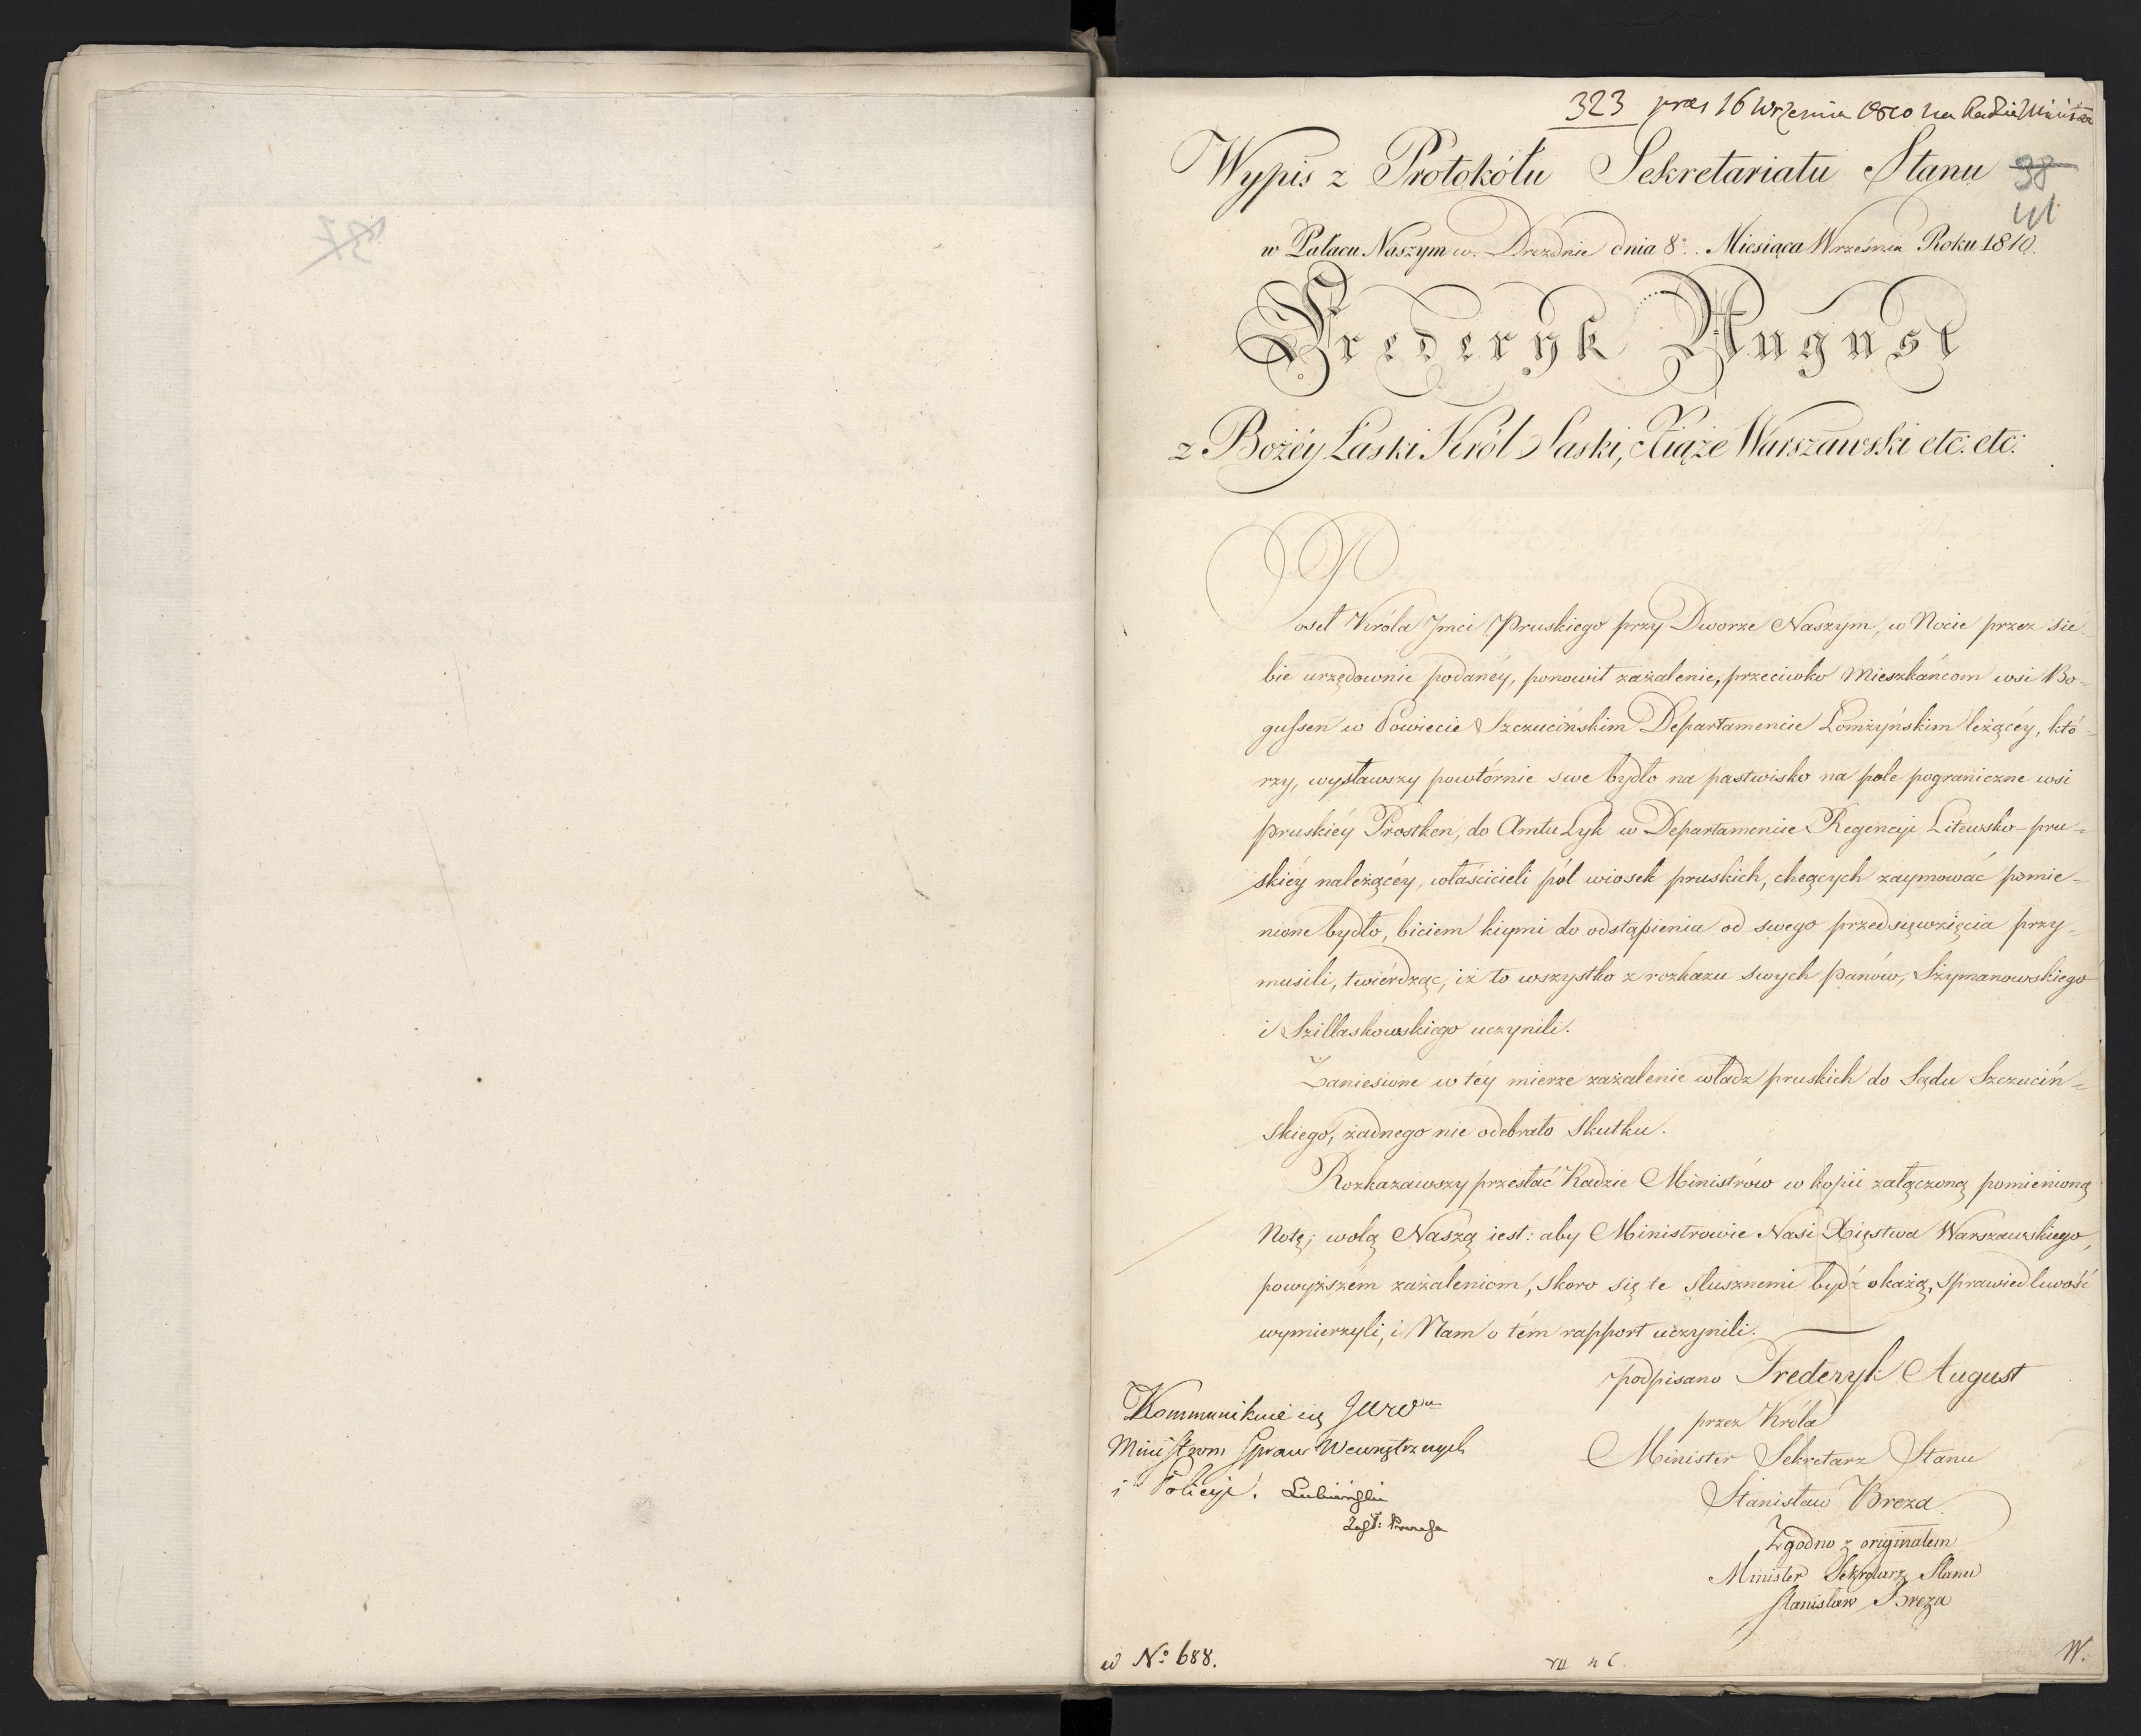 37
323 præs 16 Września 1810 na Radzie Ministrów
Wypis z Protokółu Sekretariatu Stanu 38
41
w Pałacu Naszym w. Dreźdnie dnia 8º. Miesiąca Września Roku 1810.
Frederyk August
z Bożéy Łaski Król Saski, Xiąże Warszawski etc: etc:
Poseł Króla Jmci Pruskiego przy Dworze Naszym, w Nocie przez sie-
bie urzędownie podanéy, ponowił zażalenie, przeciwko Mieszkańcom wsi Bo-
gussen w Powiecie Szczucińskim Departamencie Łomżyńskim leżącéy, któ-
rzy, wysławszy powtórnie swe bydło na pastwisko na pole pograniczne wsi
pruskiéy Prostken, do Amtu Lyk w Departamencie Regencyi Litewsko-pru-
skiéy należącéy, właścicieli pól wiosek pruskich, chcących zaymować pomie-
nione bydło, biciem kiymi do odstąpienia od swego przedsięwzięcia przy-
musili, twiérdząc, iż to wszystko z rozkazu swych panów, Szymanowskiego
i Szillaskowskiego uczynili.
Zaniesione w téy mierze zażalenie władz pruskich do Sądu Szczuciń-
skiego, żadnego nie odebrało skutku.
Rozkazawszy przesłać Radzie Ministrów w kopii załączoną pomienioną
Notę; wolą Naszą iest: aby Ministrowie Nasi Xięstwa Warszawskiego,
powyższém zażaleniom, skoro się te słusznemi bydź okażą, sprawiedliwość
wymierzyli, i Nam o tém rapport uczynili.
podpisano Frederyk August
przez Króla
Minister Sekretarz Stanu
Stanisław Breza
Zgodno z originałem
Minister Sekretarz Stanu
Stanisław Breza
Kommunikuie się JWW
Ministrom Spraw Wewnętrznych
i Policyi. Łubieński
Zast: Prezesa
w Nº 688.
W.